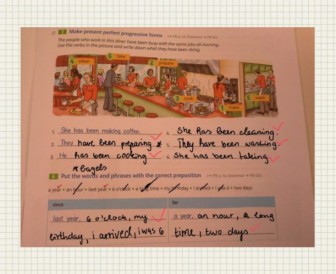 Make present perfect progressive forms
The people who work in this diner have been busy with the same jobs all morning.
Use the verbs in the picture and write down what they have been doing.
1 She has been making coffee.
2 They have been preparing
3 He has been cooking
Bagels
4 She has been cleaning.
5 They have been washing
6 She has been taking
Put the words and phrases with the correct preposition
since
for
last year, 6 o'clock, my
birthday, i arrived, i was 6
a year, an hour, a long
time, two days